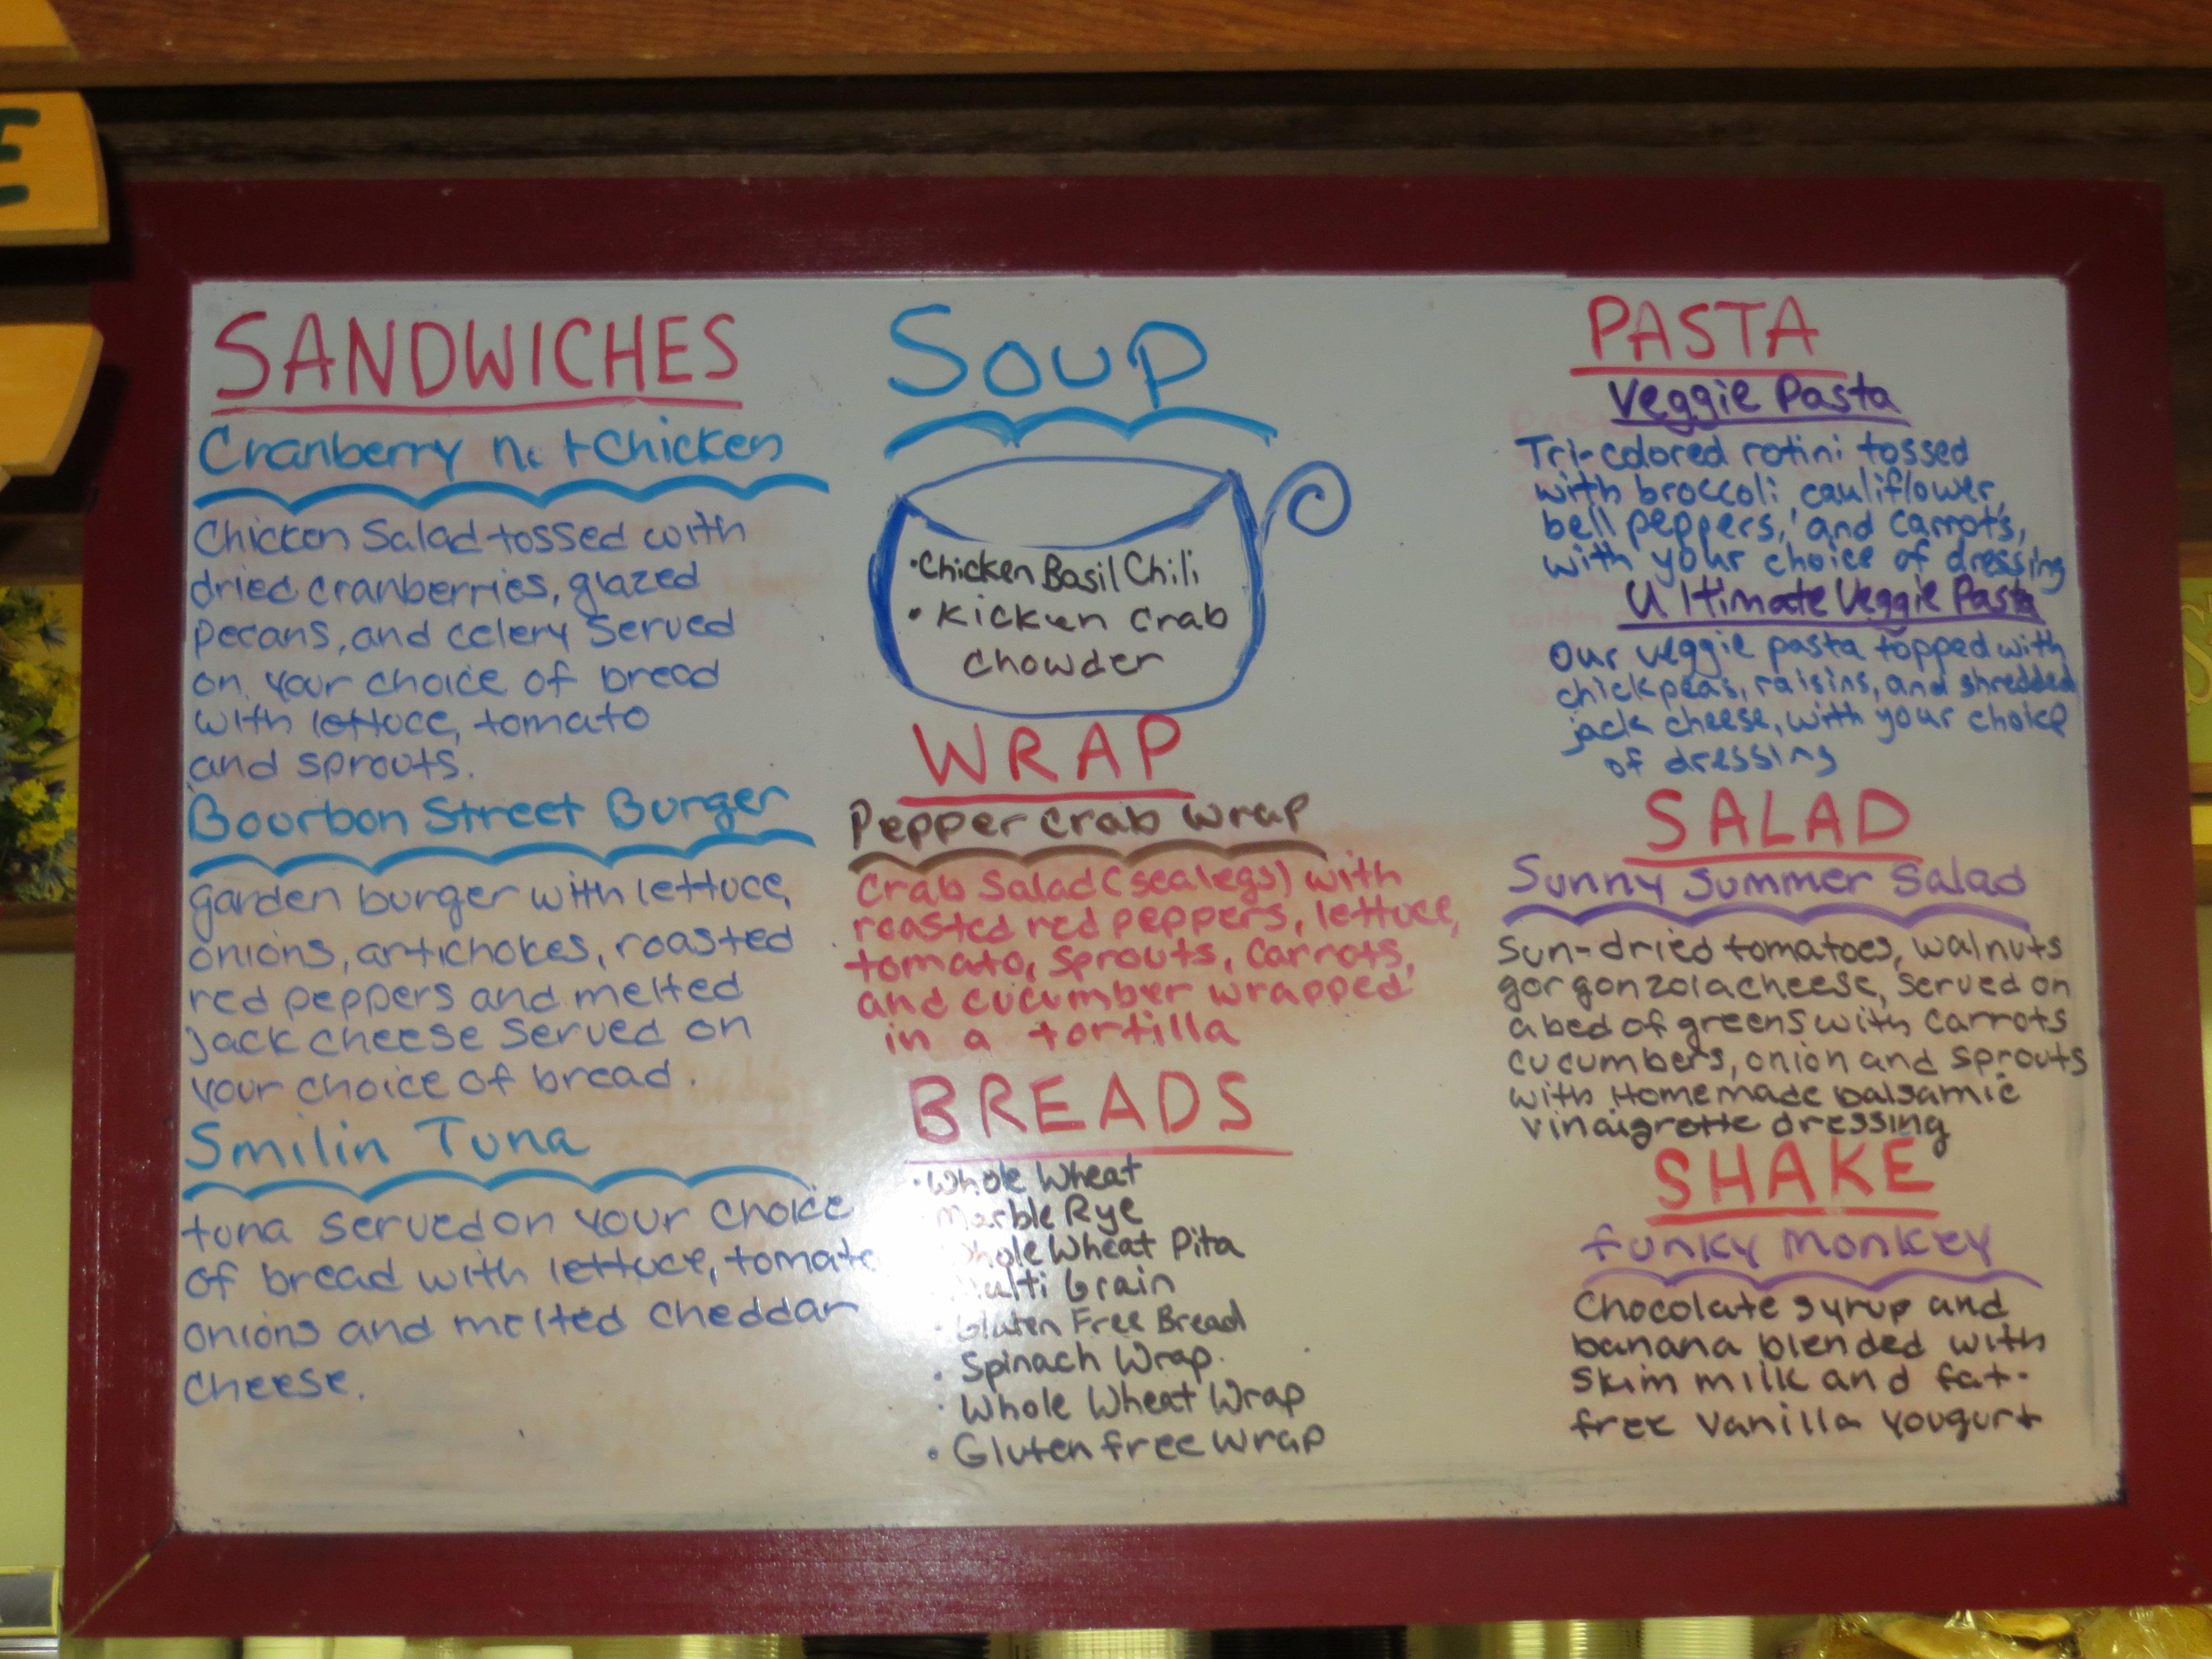 SANDWICHES
Cranberry nut Chicken
Chicken Salad tossed with
dried cranberries, glazed
pecans, and celery Served
on your choice of bread
with lettuce, tomato
and sprouts.
Bourbon Street Burger
garden burger with lettuce,
onions, artichokes, roasted
red peppers and melted
jack cheese served on
your choice of bread.
Smilin Tuna
tuna served on your choice
of bread with lettuce, tomato
onions and melted cheddar
cheese.
Soup
• Chicken Basil Chili
• Kickun crab
chowder
WRAP
Pepper crab wrap
Crab Salad (sealegs) with
roasted red peppers, lettuce,
tomato, sprouts, carrots,
and cucumber wrapped
in a tortilla
BREADS
• Whole Wheat
Marble Rye
Whole Wheat Pita
Multi Grain
• Gluten Free Bread
• Spinach Wrap.
• Whole Wheat Wrap
• Gluten free wrap
PASTA
Veggie Pasta
Tri-colored rotini tossed
with broccoli cauliflower,
bell peppers, and carrots,
with your choice of dressing
Ultimate Veggie Pasta
Our veggie pasta topped with
chickpeas, raisins, and shredded
jack cheese, with your choice
of dressing
SALAD
Sunny Summer Salad
Sun-dried tomatoes, walnuts
gorgonzola cheese, served on
a bed of greens with carrots
cucumbers, onion and sprouts
with Homemade balsamic
vinaigrette dressing
SHAKE
funky monkey
Chocolate syrup and
banana blended with
skim milk and fat-
free vanilla yougurt
E
E